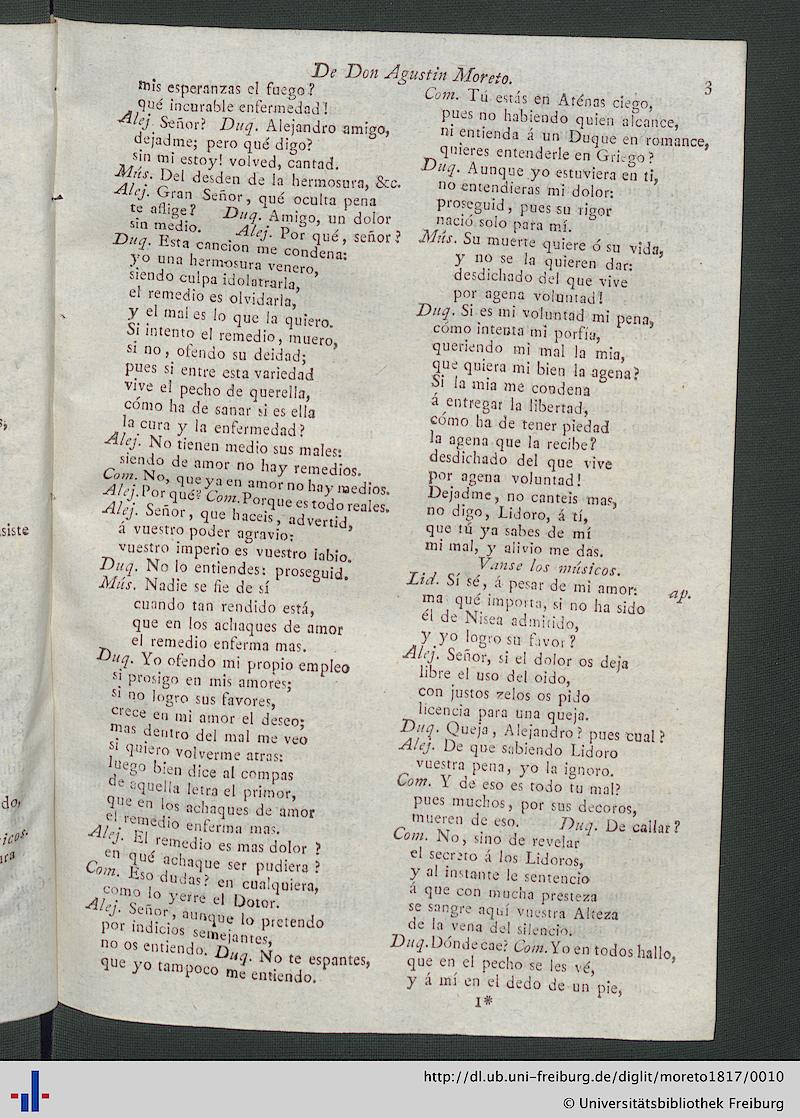 De Don Agustin Moreto.
3
mis esperanzas el fuego?
qué incurable enfermedad!
Alej. Señor? Duq. Alejandro amigo,
dejadme; pero qué digo?
sin mi estoy! volved, cantad.
Mús. Del desden de la hermosura, &c.
Alej. Gran Señor, qué oculta pena
te aflige? Duq. Amigo, un dolor
sin medio. Alej. Por qué, señor?
Duq. Esta cancion me condena:
yo una hermosura venero,
siendo culpa idolatrarla,
el remedio es olvidarla,
y el mal es lo que la quiero.
Si intento el remedio, muero,
si no, ofendo su deidad;
pues si entre esta variedad
vive el pecho de querella,
cómo ha de sanar si es ella
la cura y la enfermedad?
Alej. No tienen medio sus males:
siendo de amor no hay remedios.
Com. No, que ya en amor no hay medios.
Alej. Por qué? Com. Porque es todo reales.
Alej. Señor, que haceis, advertid,
á vuestro poder agravio:
vuestro imperio es vuestro labio.
Duq. No lo entiendes: proseguid.
Mús. Nadie se fie de sí
cuando tan rendido está,
que en los achaques de amor
el remedio enferma mas.
Duq. Yo ofendo mi propio empleo
si prosigo en mis amores;
si no logro sus favores,
crece en mi amor el deseo;
mas dentro del mal me veo
si quiero volverme atras:
luego bien dice al compas
de aquella letra el primor,
que en los achaques de amor
el remedio enferma mas.
Alej. El remedio es mas dolor?
en qué achaque ser pudiera?
Com. Eso dudas? en cualquiera,
como lo yerre el Dotor.
Alej. Señor, aunque lo pretendo
por indicios semejantes,
no os entiendo. Duq. No te espantes,
que yo tampoco me entiendo.
Com. Tú estás en Aténas ciego,
pues no habiendo quien alcance,
ni entienda á un Duque en romance,
quieres entenderle en Griego?
Duq. Aunque yo estuviera en ti,
no entendieras mi dolor:
proseguid, pues su rigor
nació solo para mí.
Mús. Su muerte quiere ó su vida,
y no se la quieren dar:
desdichado del que vive
por agena voluntad!
Duq. Si es mi voluntad mi pena,
cómo intenta mi porfia,
queriendo mi mal la mia,
que quiera mi bien la agena?
Si la mia me condena
á entregar la libertad,
cómo ha de tener piedad
la agena que la recibe?
desdichado del que vive
por agena voluntad!
Dejadme, no canteis mas,
no digo, Lidoro, á tí,
que tú ya sabes de mí
mi mal, y alivio me das.
Vanse los músicos.
Lid. Sí sé, á pesar de mi amor: ap.
ma qué importa, si no ha sido
él de Nisea admitido,
y yo logro su favor?
Alej. Señor, si el dolor os deja
libre el uso del oido,
con justos zelos os pido
licencia para una queja.
Duq. Queja, Alejandro? pues cual?
Alej. De que sabiendo Lidoro
vuestra pena, yo la ignoro.
Com. Y de eso es todo tu mal?
pues muchos, por sus decoros,
mueren de eso. Duq. De callar?
Com. No, sino de revelar
el secreto á los Lidoros,
y al instante le sentencio
á que con mucha presteza
se sangre aquí vuestra Alteza
de la vena del silencio.
Duq. Dónde cae? Com. Yo en todos hallo,
que en el pecho se les vé,
y á mí en el dedo de un pie,
1*
siste
do,
icos.
http://dl.ub.uni-freiburg.de/diglit/moreto1817/0010
© Universitätsbibliothek Freiburg